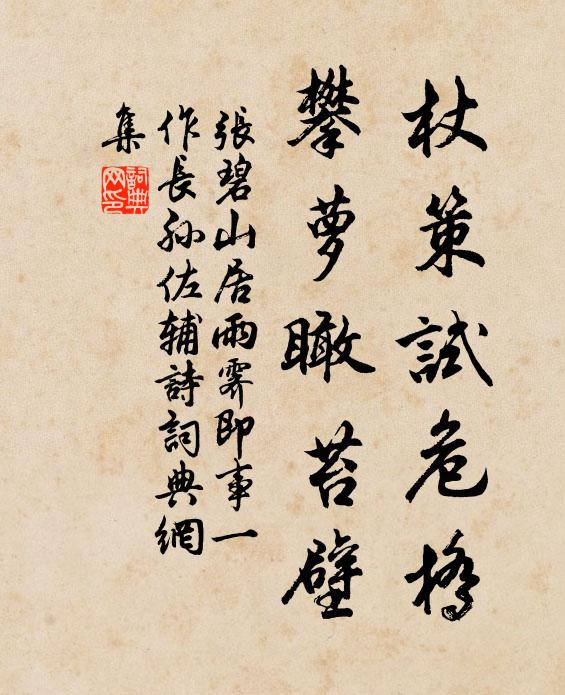 杖策試危橋
攀萝瞰苔壁
張碧山居雨霽即事一
作長孙佐辅詩詞典網
集
詞典
网印